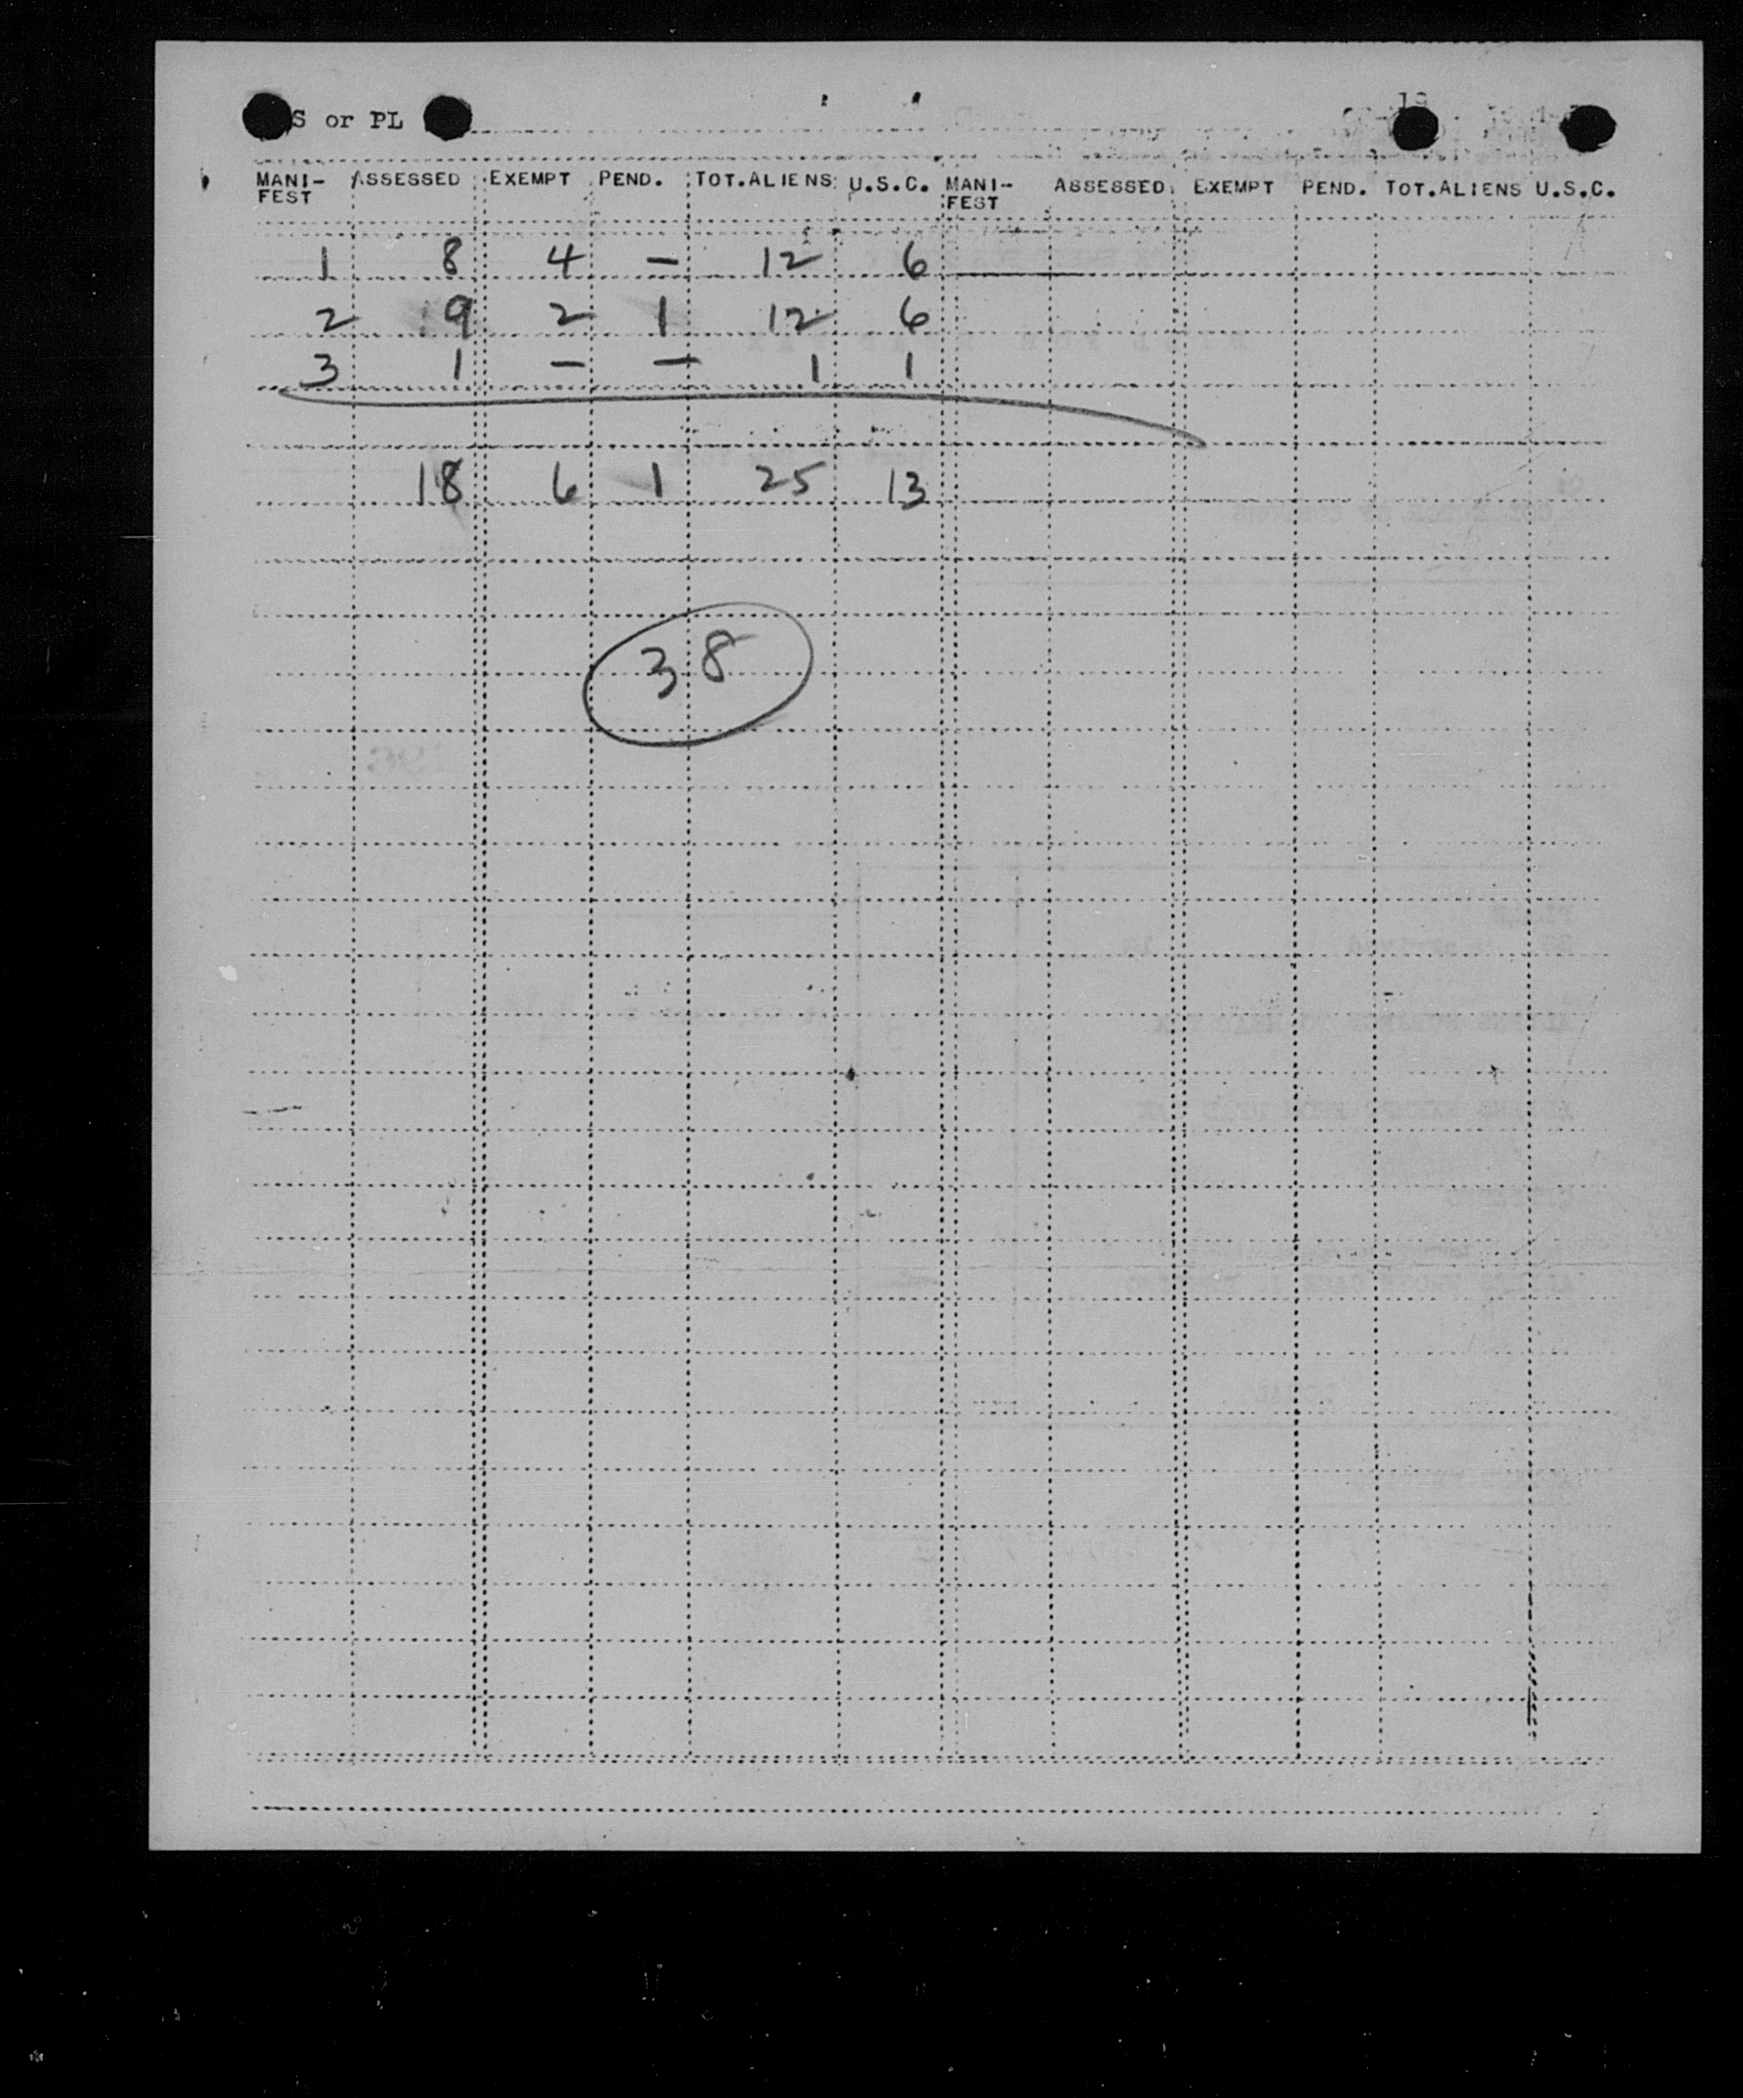 S or PL 19
MANI-FEST ASSESSED EXEMPT PEND. TOT.ALIENS U.S.C. MANI-FEST ASSESSED EXEMPT PEND. TOT.ALIENS U.S.C.
1 8 4 – 12 6
2 9 2 1 12 6
3 1 – – 1 1
18 6 1 25 13
38